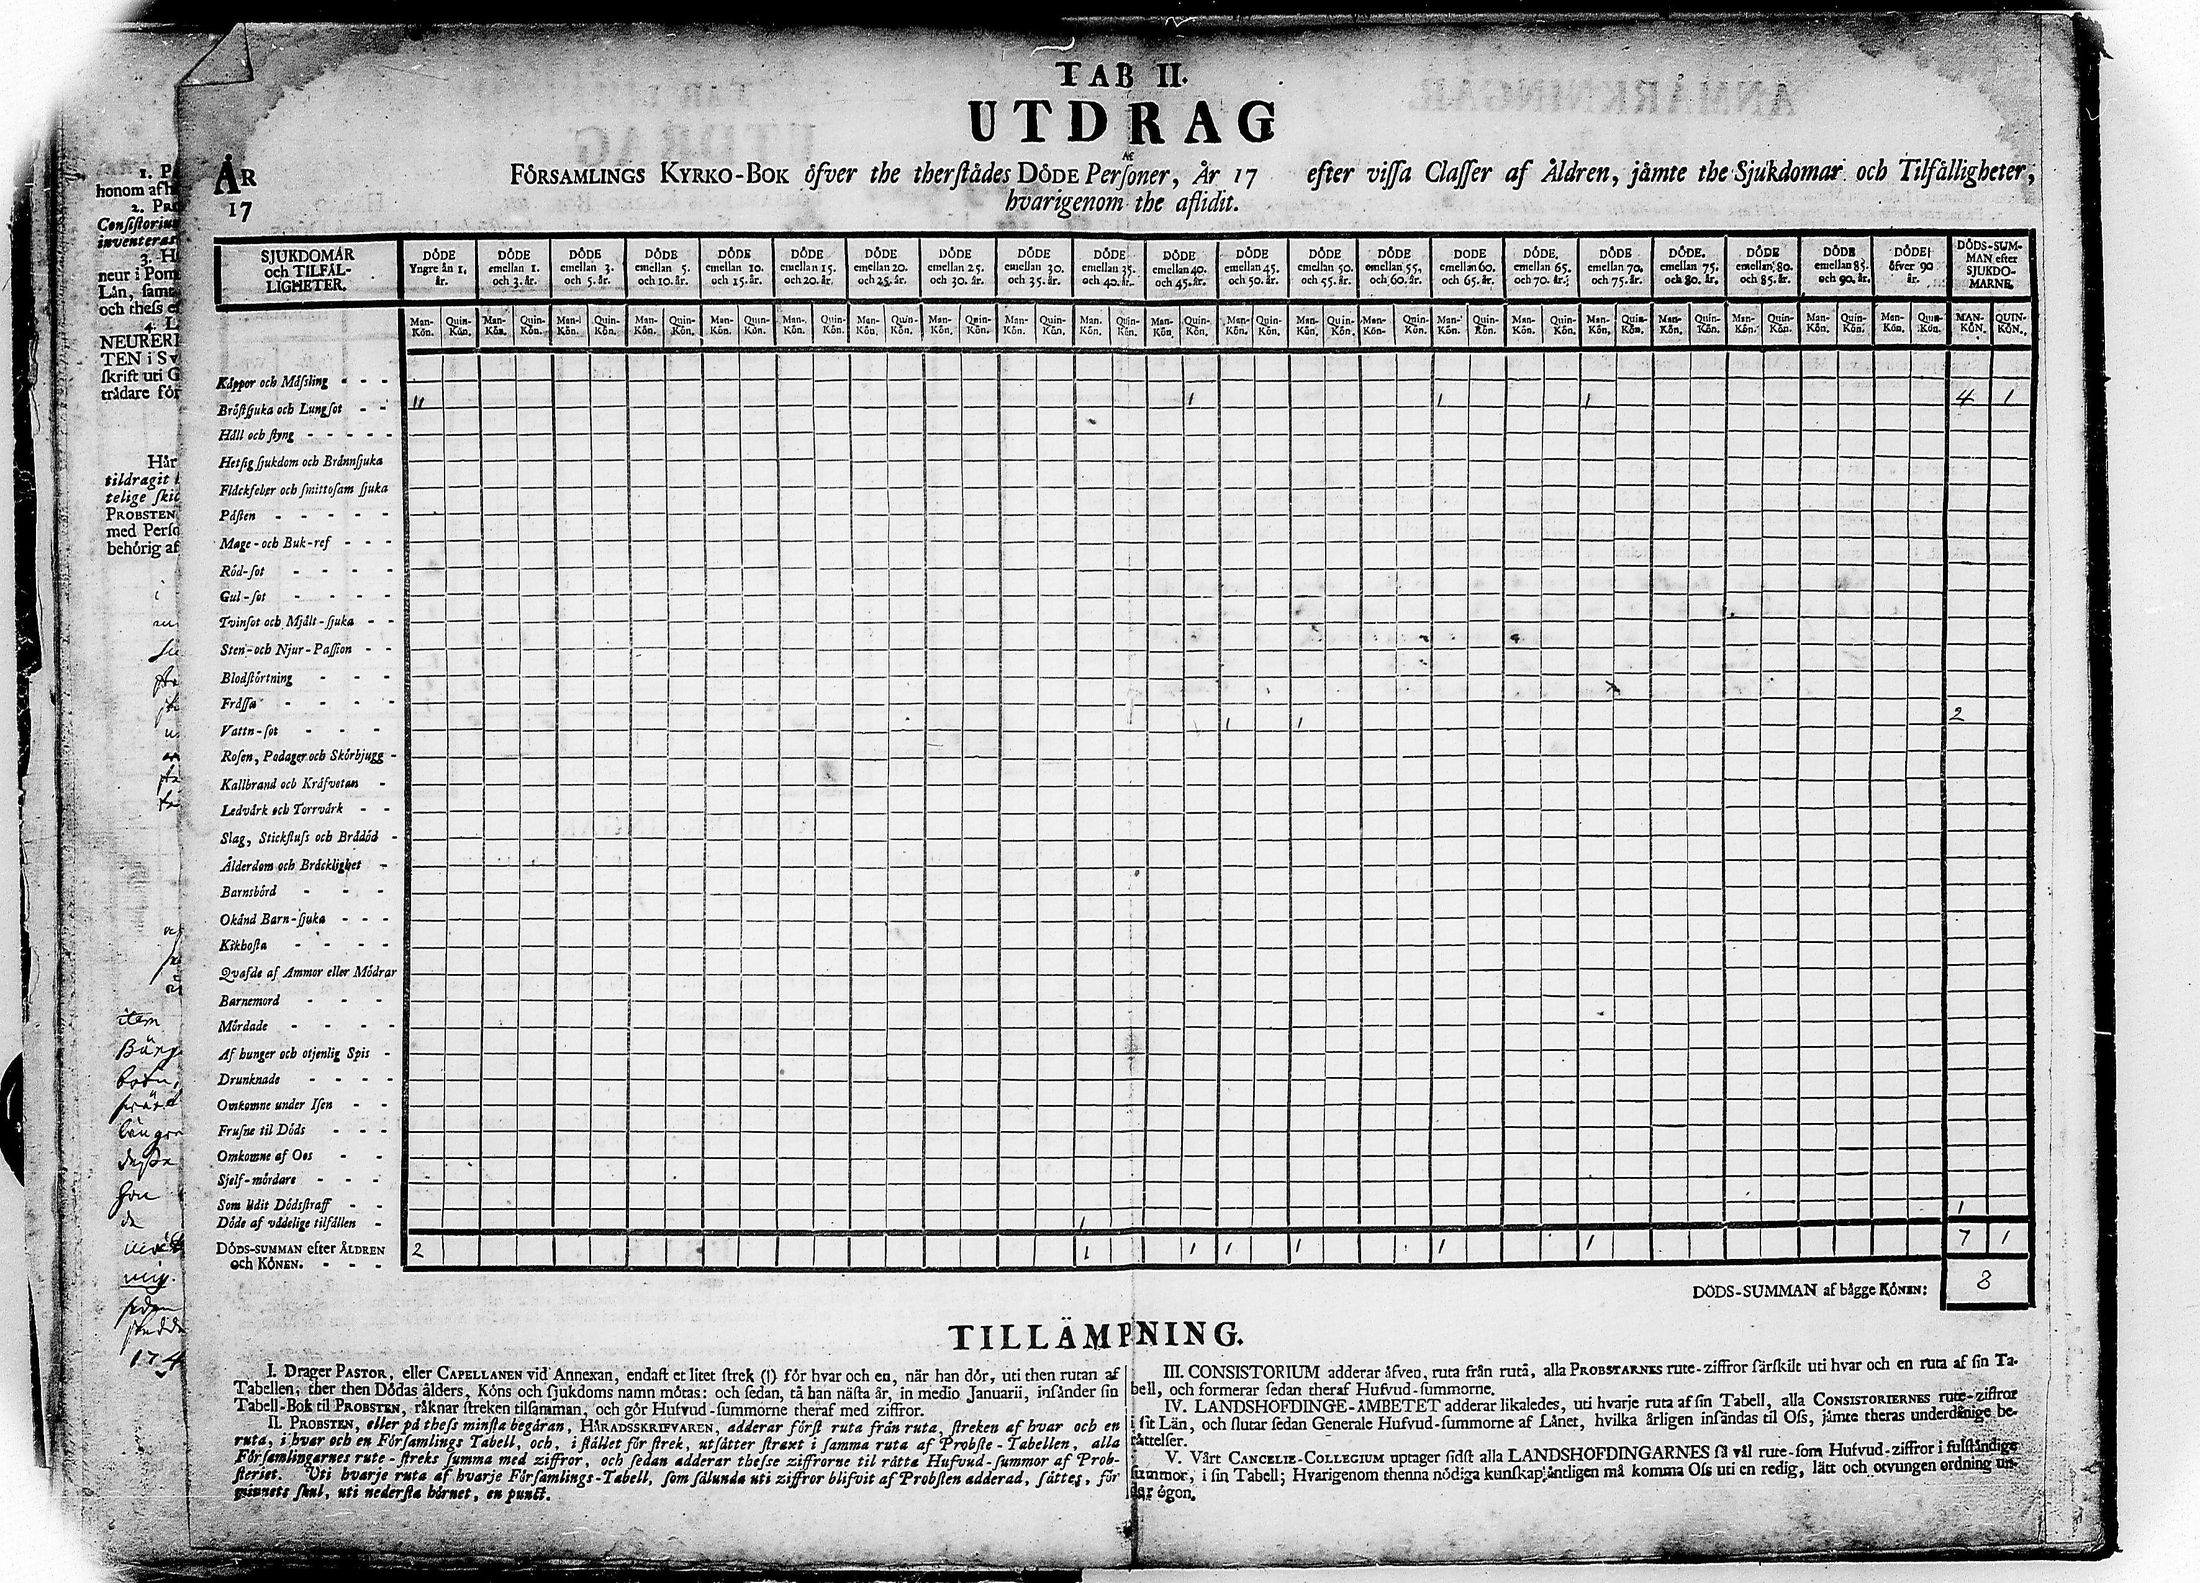 TAB II.
UTDRAG
ÅR
17
FÖRSAMLINGS KYRKO-BOK öfver the therstådes DÖDE Personer, År 17 efter vissa Classer af Åldren, jämte the Sjukdomar och Tilfälligheter,
hvarigenom the aflidit.
SJUKDOMAR och TILFÄL-LIGHETER.
DÖDE Yngre än 1. år.
DÖDE emellan 1. och 3. år.
DÖDE emellan 3. och 5. år.
DÖDE emellan 5. och 10. år.
DÖDE emellan 10. och 15. år.
DÖDE emellan 15. och 20. år.
DÖDE emellan 20. och 25. år.
DÖDE emellan 25. och 30. år.
DÖDE emellan 30. och 35. år.
DÖDE emellan 35. och 40. år.
DÖDE emellan 40. och 45. år.
DÖDE emellan 45. och 50. år.
DÖDE emellan 50. och 55. år.
DÖDE emellan 55. och 60. år.
DÖDE emellan 60. och 65. år.
DÖDE emellan 65. och 70. år.
DÖDE emellan 70. och 75. år.
DÖDE. emellan 75. och 80. år.
DÖDE emellan 80. och 85. år.
DÖDE emellan 85. och 90. år.
DÖDE öfver 90 år.
DÖDS-SUM-MAN efter SJUKDO-MARNE.
Man-Kön. Quin-Kön. Man-Kön. Quin-Kön. Man-Kön. Quin-Kön. Man-Kön. Quin-Kön. Man-Kön. Quin-Kön. Man-Kön. Quin-Kön. Man-Kön. Quin-Kön. Man-Kön. Quin-Kön. Man-Kön. Quin-Kön. Man-Kön. Quin-Kön. Man-Kön. Quin-Kön. Man-Kön. Quin-Kön. Man-Kön. Quin-Kön. Man-Kön. Quin-Kön. Man-Kön. Quin-Kön. Man-Kön. Quin-Kön. Man-Kön. Quin-Kön. Man-Kön. Quin-Kön. Man-Kön. Quin-Kön. Man-Kön. Quin-Kön. Man-Kön. Quin-Kön. MAN-KÖN. QUIN-KÖN.
Koppor och Mäsling - - -
Bröstsjuka och Lungsot - - 11 1 1 1 4 1
Håll och styng - - - - -
Hetsig sjukdom och Brännsjuka
Fläckfeber och smittosam sjuka
Pästen - - - - -
Mage-och Buk-ref - - -
Röd-sot - - - -
Gul-sot - - - -
Tvinsot och Mjält-sjuka - -
Sten-och Njur-Passion - -
Blodstörtning - - -
Frässa - - - -
Vattn-sot - - - 1 1 2
Rosen, Podager och Skörbjugg -
Kallbrand och Kräfvetan -
Ledvärk och Torrvärk - -
Slag, Stickfluss och Brådöd -
Ålderdom och Bräcklighet -
Barnsbörd - - -
Okänd Barn-sjuka - - -
Kikhosta - - - -
Qvafde af Ammor eller Mödrar
Barnemord - - -
Mördade - - - -
Af hunger och otjenlig Spis -
Drunknade - - - -
Omkomne under Isen - -
Frusne til Döds - - -
Omkomne af Oos - -
Sjelf-mördare - - -
Som lidit Dödsstraff - -
Döde af vådelige tilfällen - 1 1
DÖDS-SUMMAN efter ÅLDREN och KÖNEN. - - - 2 1 1 1 1 1 1 7 1
DÖDS-SUMMAN af bägge KÖNEN: 8
TILLÄMPNING.
I. Drager PASTOR, eller CAPELLANEN vid Annexan, endast et litet strek (1) för hvar och en, när han dör, uti then rutan af
Tabellen, ther then Dödas ålders, Köns och sjukdoms namn mötas: och sedan, tå han nästa år, in medio Januarii, insänder sin
Tabell-Bok til PROBSTEN, räknar streken tilsamman, och gör Hufvud-summorne theraf med ziffror.
II. PROBSTEN, eller på thess minsta begäran, HÄRADSSKRIFVAREN, adderar först ruta från ruta, streken af hvar och en
ruta, i hvar och en Församlings Tabell, och, i stället för strek, utsätter straxt i samma ruta af Probste-Tabellen, alla
Församlingarnes rute-streks summa med ziffror, och sedan adderar thesse ziffrorne til rätta Hufvud-summor af Prob-
steriet. Uti hvarje ruta af hvarje Församlings-Tabell, som sålunda uti ziffror blifvit af Probsten adderad, sättes, för
minnets skul, uti nedersta hörnet, en punct.
III. CONSISTORIUM adderar äfven, ruta från ruta, alla PROBSTARNES rute-ziffror särskilt uti hvar och en ruta af sin Ta-
bell, och formerar sedan theraf Hufvud-summorne.
IV. LANDSHÖFDINGE-ÄMBETET adderar likaledes, uti hvarje ruta af sin Tabell, alla CONSISTORIERNES rute-ziffror
i sit Län, och slutar sedan Generale Hufvud-summorne af Länet, hvilka årligen insändas til Oss, jämte theras underdånige be-
rättelser.
V. Vårt CANCELIE-COLLEGIUM uptager sidst alla LANDSHÖFDINGARNES så väl rute-som Hufvud-ziffror i fulständige
summor, i sin Tabell; Hvarigenom thenna nödiga kunskap äntligen må komma Oss uti en redig, lätt och otvungen ordning un-
der ögon.